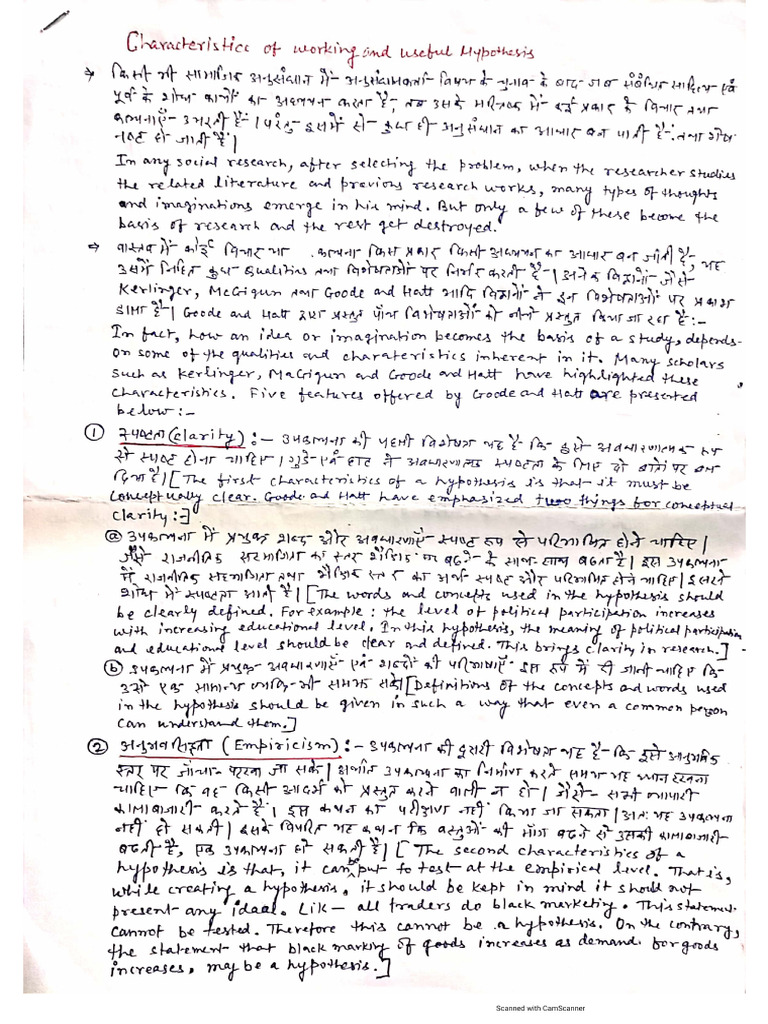 Characteristics of working and useful Hypothesis
→ किसी भी सामाजिक अनुसंधान में अनुसंधानकर्ता विषय के चुनाव के बाद जब संबंधित साहित्य एवं
पूर्व के शोध कार्यों का अध्ययन करता है, तब उसके मस्तिष्क में कई प्रकार के विचार तथा
कल्पनाएँ उभरती हैं। परंतु इसमें से कुछ ही अनुसंधान का आधार बन पाती है तथा शेष
नष्ट हो जाती हैं।
In any social research, after selecting the problem, when the researcher studies
the related literature and previous research works, many types of thoughts
and imaginations emerge in his mind. But only a few of these become the
basis of research and the rest get destroyed.
⇒ वास्तव में कोई विचार या कल्पना किस प्रकार किसी अध्ययन का आधार बन जाती है, यह
उसमें निहित कुछ Qualities तथा विशेषताओं पर निर्भर करती है। अनेक विद्वानों जैसे
Kerlinger, McGigun तथा Goode and Hatt आदि विद्वानों ने इन विशेषताओं पर प्रकाश
डाला है। Goode and Hatt द्वारा प्रस्तुत पाँच विशेषताओं को नीचे प्रस्तुत किया जा रहा है:-
In fact, how an idea or imagination becomes the basis of a study, depends
on some of the qualities and charateristics inherent in it. Many scholars
such as Kerlinger, MaGigun and Goode and Hatt have highlighted these
characteristics. Five features offered by Goode and Hatt are presented
below:-
① स्पष्टता (clarity):- उपकल्पना की पहली विशेषता यह है कि इसे अवधारणात्मक रूप
से स्पष्ट होना चाहिए। गुडे एवं हाट ने अवधारणात्मक स्पष्टता के लिए दो बातों पर बल
दिया है। [The first characteristics of a hypothesis is that it must be
conceptually clear. Goode and Hatt have emphasized two things for conceptual
clarity:]
ⓐ उपकल्पना में प्रयुक्त शब्द और अवधारणाएँ स्पष्ट रूप से परिभाषित होने चाहिए।
जैसे राजनीतिक सहभागिता का स्तर शैक्षिक स्तर बढ़ने के साथ-साथ बढ़ता है। इस उपकल्पना
में राजनीतिक सहभागिता तथा शैक्षिक स्तर का अर्थ स्पष्ट और परिभाषित होने चाहिए। इससे
शोध में स्पष्टता आती है। [The words and concepts used in the hypothesis should
be clearly defined. For example: the level of political participation increases
with increasing educational level. In this hypothesis, the meaning of political participation
and educational level should be clear and defined. This brings clarity in research.]
ⓑ उपकल्पना में प्रयुक्त अवधारणाएँ एवं शब्दों की परिभाषाएँ इस रूप में दी जानी चाहिए कि
उसे एक सामान्य व्यक्ति भी समझ सके [Definitions of the concepts and words used
in the hypothesis should be given in such a way that even a common person
can understand them.]
② अनुभवसिद्धता (Empiricism):- उपकल्पना की दूसरी विशेषता यह है कि इसे आनुभविक
स्तर पर जाँचा-परखा जा सके। अर्थात उपकल्पना का निर्माण करते समय यह ध्यान रखना
चाहिए कि वह किसी आदर्श को प्रस्तुत करने वाली न हो। जैसे- सभी व्यापारी
कालाबाजारी करते हैं। इस कथन का परीक्षण नहीं किया जा सकता। अतः यह उपकल्पना
नहीं हो सकती। इसके विपरित यह कथन कि वस्तुओं की माँग बढ़ने से उसकी कालाबाजारी
बढ़ती है, एक उपकल्पना हो सकती है। [The second characteristics of a
hypothesis is that, it can be put to test at the empirical level. That is,
while creating a hypothesis, it should be kept in mind it should not
present any ideal. Lik- all traders do black marketing. This statement
cannot be tested. Therefore this cannot be a hypothesis. On the contrary,
the statement that black marking of goods increases as demand for goods
increases, may be a hypothesis.]
Scanned with CamScanner